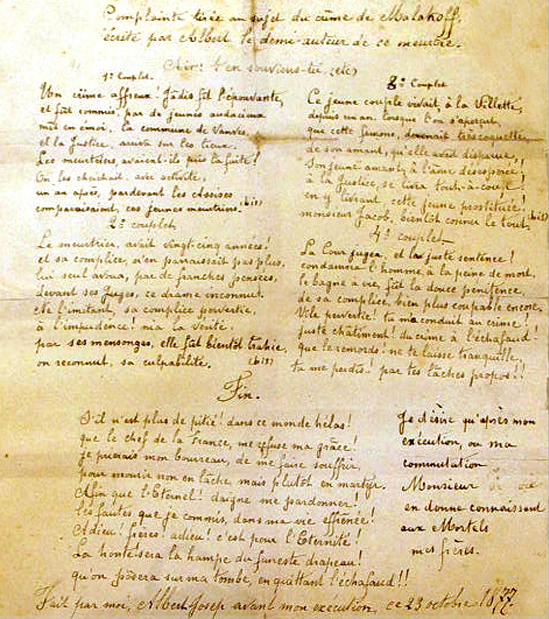 Complainte tirée au sujet du crime de Malakoff,
écrite par Albert le demi-auteur de ce meurtre.
Air: t'en souviens-tu, (etc)
1er Couplet.
Un crime affreux! Jadis fût l'épouvante,
et fût commis, par de jeunes audacieux
mit en émoi, la commune de Vanves,
et la Justice, arriva sur les lieux.
Les meurtriers avaient-ils pris la fuite!
On les cherchait, avec activité,
un an après, pardevant les Assises
comparaissaient, ces jeunes meurtriers. (bis)
2e couplet
Le meurtrier, avait vingt-cinq années!
et sa complice, n'en paraissait pas plus,
lui seul avoua, par de franches pensées,
devant ses Juges, ce drame inconnut.
A l'instant, sa complice pervertie,
à l'impudence! nia la vérité.
par ses mensonges, elle fût bientôt trahie,
on reconnut, sa culpabilité. (bis)
3e Couplet
Ce jeune couple vivait, à la Villette,
depuis un an, lorsque l'on s'aperçut,
que cette femme, devenait très coquette,
de son amant, qu'elle avait disparue,,
Son jeune amant, à l'âme désespérée!
à la Justice, se livra tout-à-coup!
en y livrant, cette jeune prostituée!
monsieur Jacob, bientôt connut le tout. (bis)
4e couplet
La Cour jugea, et la juste sentence!
condamna l'homme, à la peine de mort,
le bagne à vie, fût la douce pénitence,
de sa complice, bien plus coupable encore,
Vile pervertie! tu m'a conduit au crime!
juste châtiment! du crime à l'échafaud!
que le remords, ne te laisse tranquille,
tu me perdis! par tes lâches propos!!
Fin.
S'il n'est plus de pitié! dans ce monde hélas!
que le chef de la France, me refuse ma grâce!
Je prierais mon bourreau, de me faire souffrir,
pour mourir non en lâche, mais plutôt en martyr.
Afin que l'Eternel! daigne me pardonner!
les fautes que je commis, dans ma vie effrénée!
Adieu! frères! adieu! c'est pour l'Eternité!
La honte sera la hampe du funeste drapeau!
qu'on posera sur ma tombe, en quittant l'échafaud!!
Je désire qu'après mon
exécution, ou ma
commutation
Monsieur
en donne connaissant
aux Mortels
mes frères.
Fait par moi, Albert Josep avant mon execution, ce 23 octobre 1877.